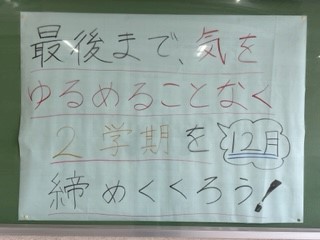 最後まで、気を
ゆるめることなく
2学期を 12月
締めくくろう!